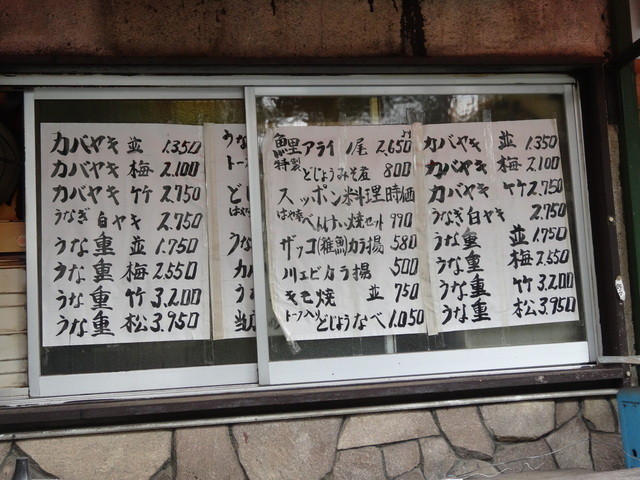 カバヤキ 並 1.350
カバヤキ 梅 2.100
カバヤキ 竹 2.750
うなぎ白ヤキ 2.750
うな重 並 1.750
うな重 梅 2.550
うな重 竹 3.200
うな重 松 3.950
うな
トーフ
ど
はや
うな
カ
うな
当
鯉アライ 1尾 2,650
特製 どじょうみそ煮 800
スッポン料理 時価
はや焼べんけい焼セット 990
ザッコ(稚魚)カラ揚 580
川エビカラ揚 500
きも焼 並 750
トーフ入り どじょうなべ 1.050
カバヤキ 並 1.350
カバヤキ 梅 2.100
カバヤキ 竹 2.750
うなぎ白ヤキ 2.750
うな重 並 1.750
うな重 梅 2.550
うな重 竹 3.200
うな重 松 3.950